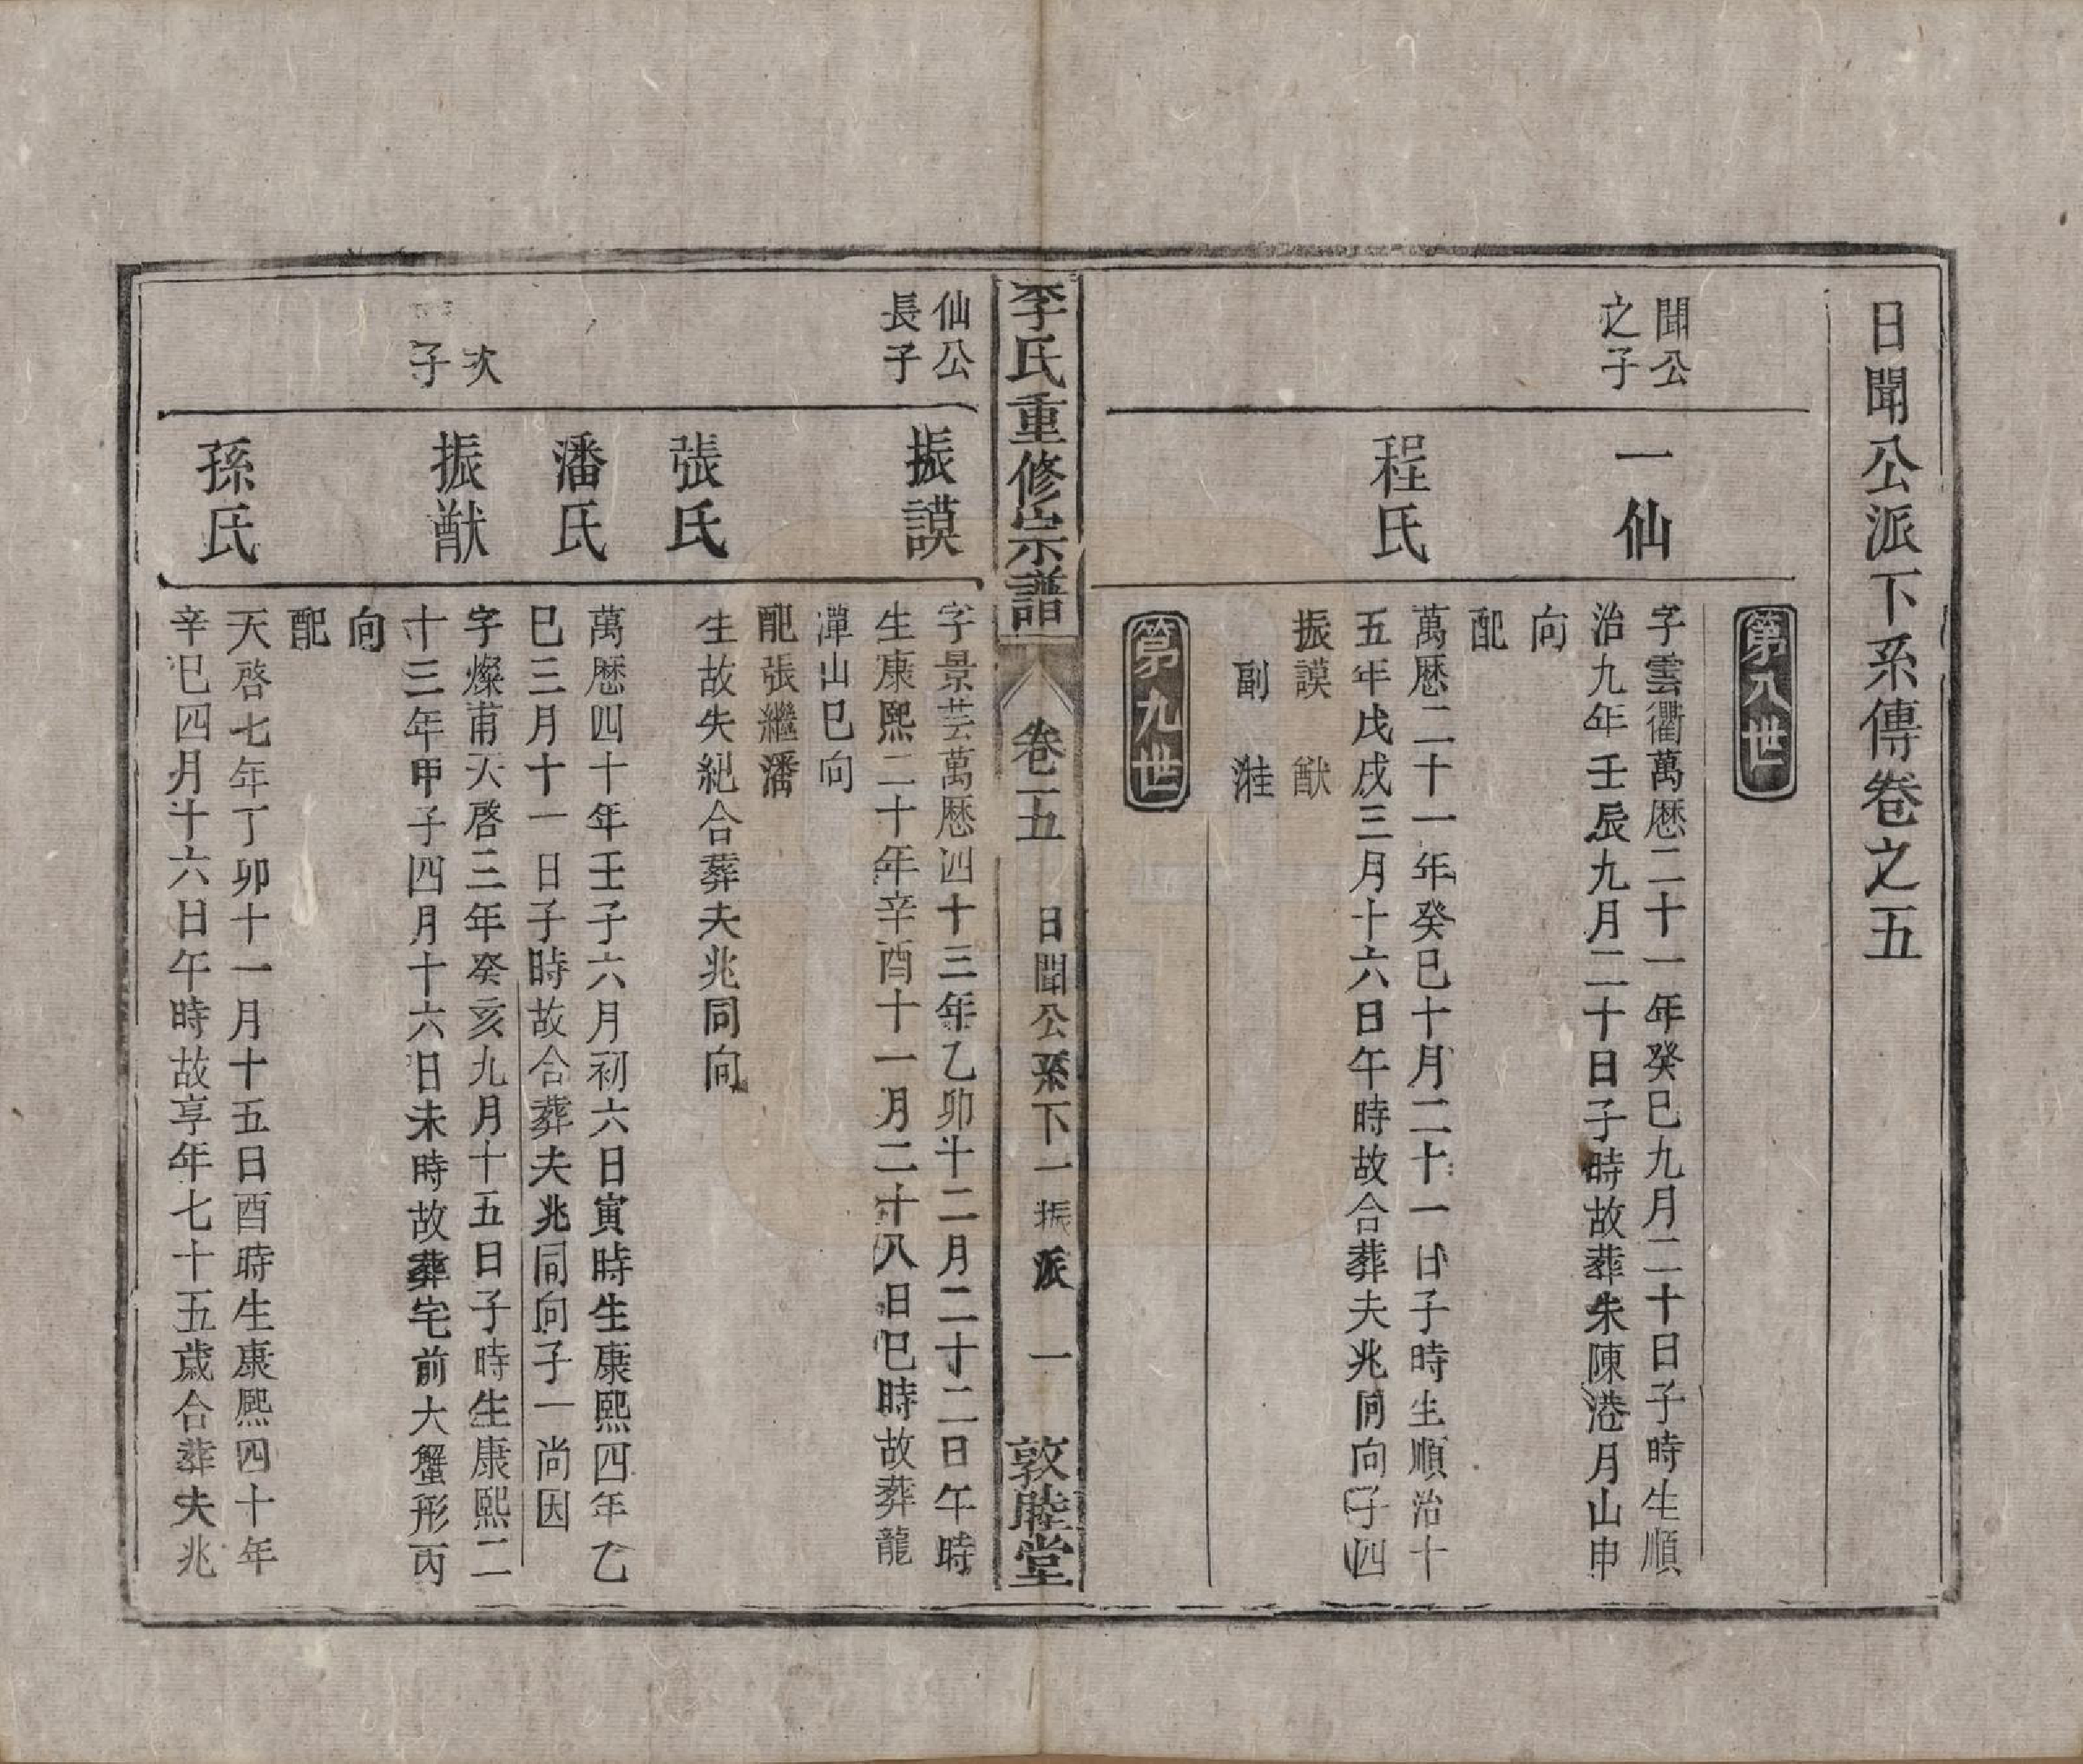 日聞公派下系傳卷之五
第八世
聞公
之子
一仙
字雲衢萬厯二十一年癸巳九月二十日子時生順
治九年壬辰九月二十日子時故葬朱陳港月山申
向
程氏
配
萬厯二十一年癸巳十月二十一日子時生順治十
五年戊戌三月十六日午時故合葬夫兆同向子四
振謨 猷
副 溎
第九世
李氏重修宗譜
卷五
日聞公系下一振派
一
敦睦堂
仙公
長子
振謨
字景芸萬厯四十三年乙卯十二月二十二日午時
生康熙二十年辛酉十一月二十八日巳時故葬龍
潭山巳向
配張繼潘
張氏
生故失紀合葬夫兆同向
潘氏
萬厯四十年壬子六月初六日寅時生康熙四年乙
巳三月十一日子時故合葬夫兆同向子一尚因
次
子
振猷
字燦甫天啓三年癸亥九月十五日子時生康熙二
十三年甲子四月十六日未時故葬宅前大蟹形丙
向
配
孫氏
天啓七年丁卯十一月十五日酉時生康熙四十年
辛巳四月十六日午時故享年七十五歲合葬夫兆